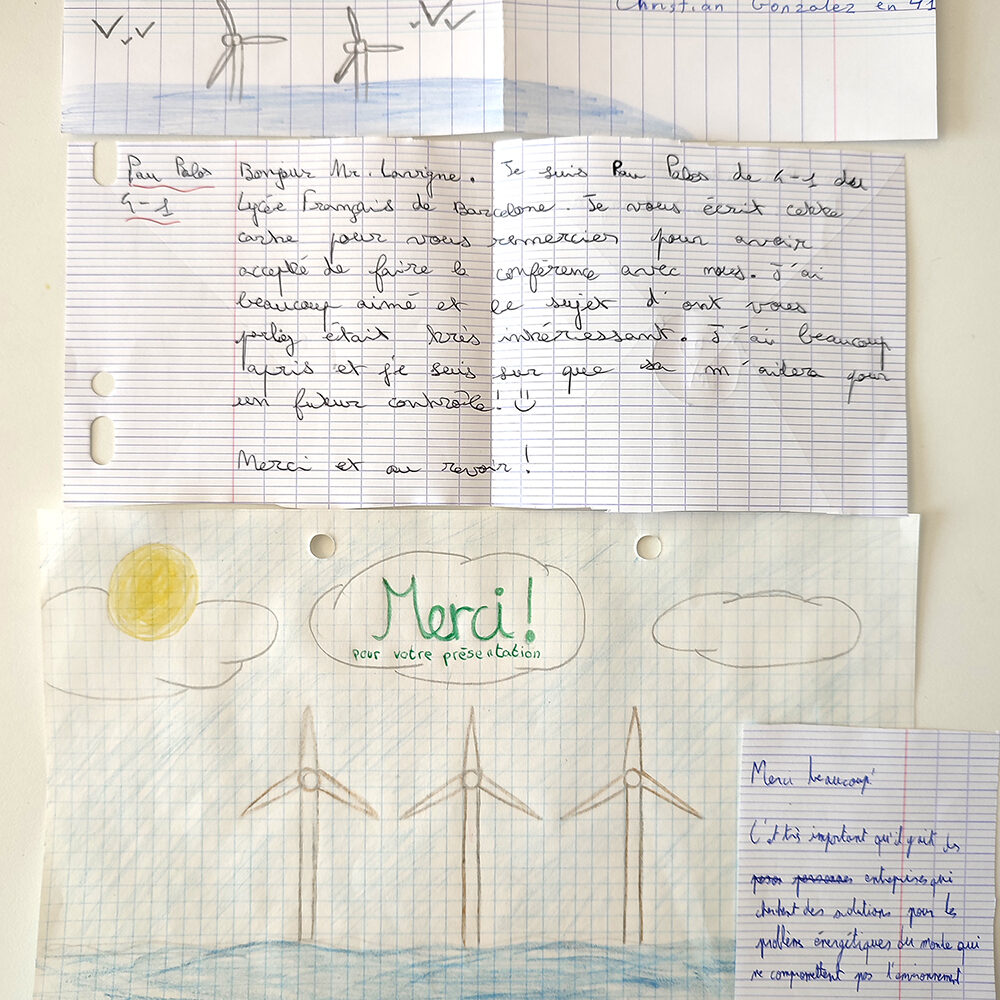 Christian Gonzalez en 41
Pau Palos Bonjour Mr. Lavigne. Je suis Pau Palos de 4-1 du
4-1 Lycée Français de Barcelone. Je vous écrit cette
carte pour vous remercier pour avoir
accepté de faire la conférence avec nous. J'ai
beaucoup aimé et le sujet d'ont vous
parliez était très intréressant. J'ai beaucoup
apris et je suis sur que sa m'aidera pour
un futur contrôle! :)
Merci et au revoir!
Merci!
pour votre présentation
Merci beaucoup!
C'est très important qu'il y ait des
entreprises qui
cherchent des solutions pour les
problèms énergétiques du monde qui
ne compromettent pas l'environnement